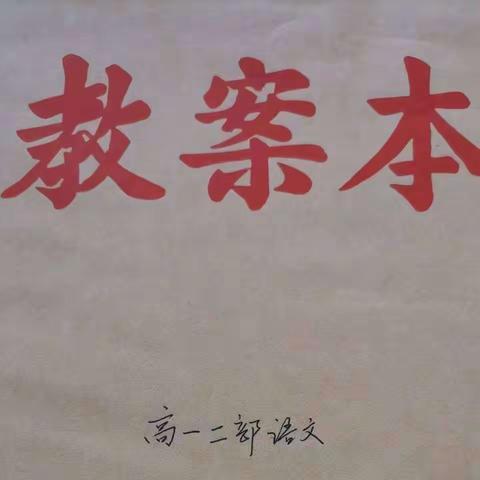 教案本
高一二部语文